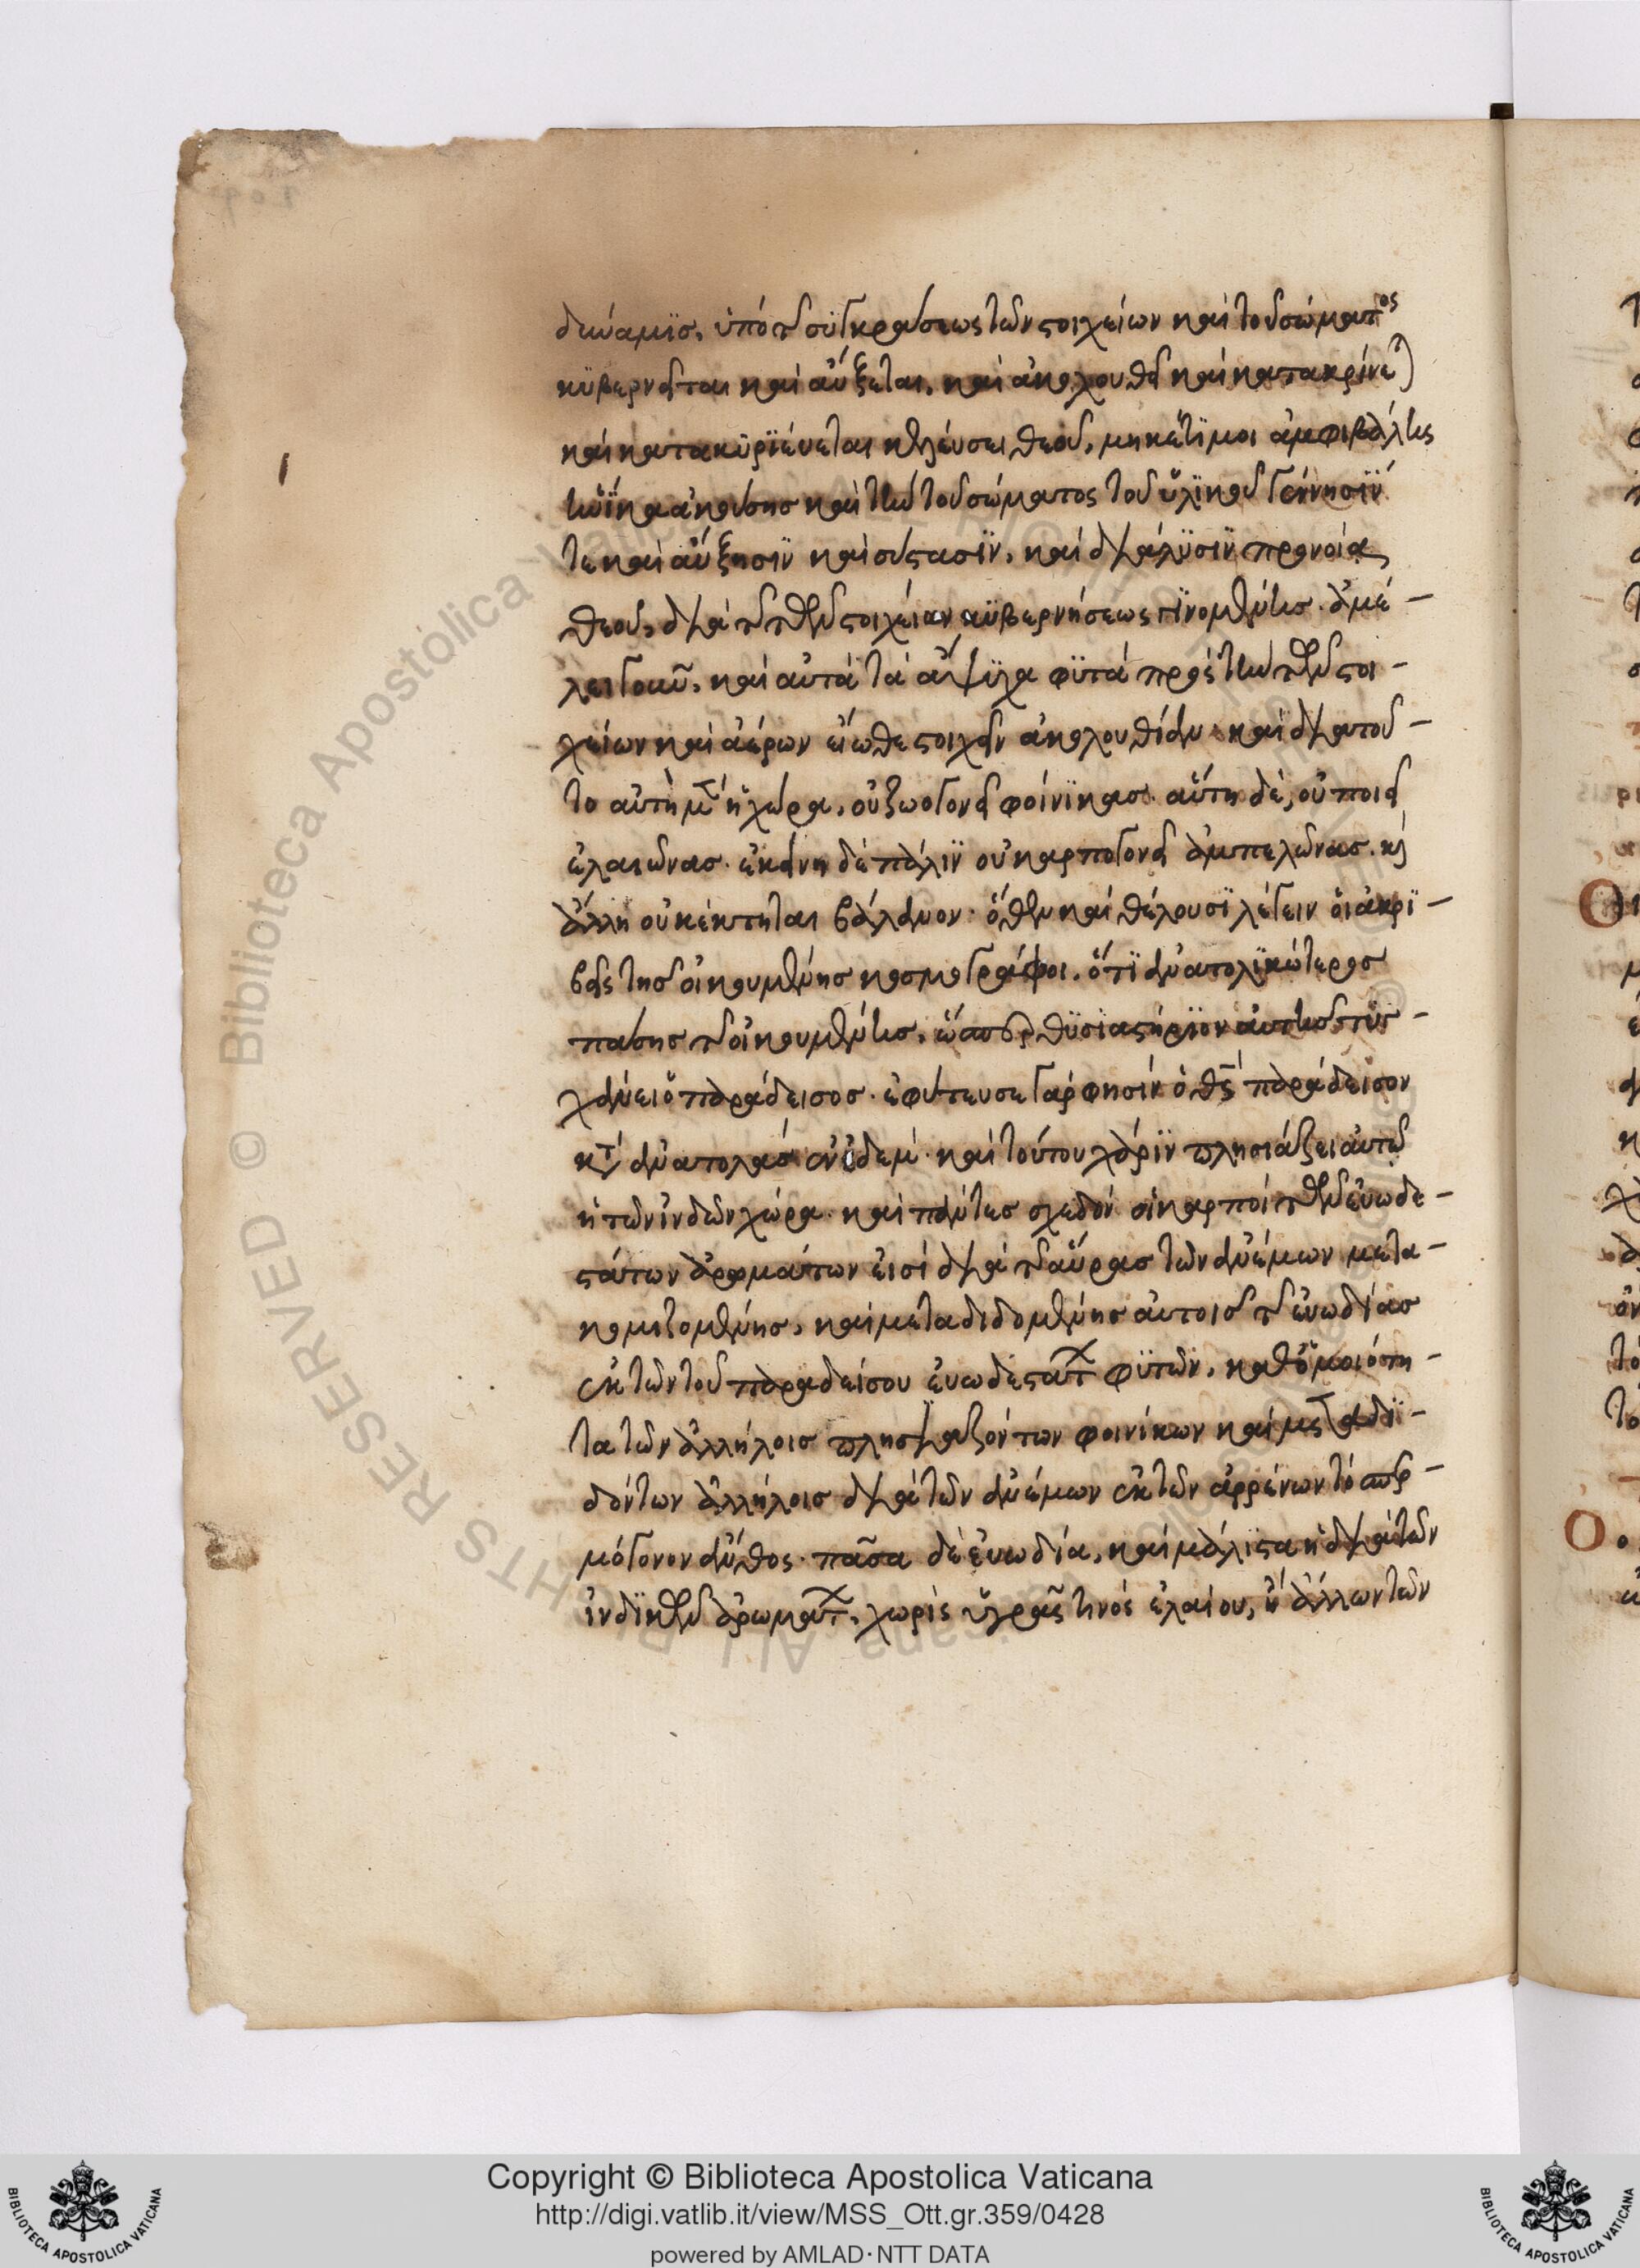 δυνάμις, ὑπὸ τῆς συγκράσεως τῶν στοιχείων καὶ τοῦ σώματος
κυβερνᾶται καὶ αὔξεται, καὶ ἀκολουθεῖ καὶ κατακρίνεται
καὶ κατακυριεύεται κελεύσει θεοῦ, μηκέτι μοι ἀμφιβάλης
καὶ τὴν τοῦ σώματος τοῦ ὑλικοῦ γέννησίν
τε καὶ αὔξησιν καὶ σύστασιν, καὶ διάλυσιν προνοία
θεοῦ, διὰ τῆς τῶν στοιχείων κυβερνήσεως γινομένης. ἀμέ-
λει γοῦν, καὶ αὐτὰ τὰ ἄψυχα φυτὰ πρὸς τὴν τῶν στοι-
χείων καὶ ἀέρων εἴωθε στοιχεῖν ἀκολουθίαν. καὶ διατοῦ-
το αὐτὴ μὲν ἡ χώρα, οὐ ζωογονεῖ φοίνικας. αὕτη δὲ, οὐ ποιεῖ
ἐλαιῶνας. ἐκείνη δὲ πάλιν οὐ καρπογονεῖ ἀμπελῶνας. καὶ
ἄλλη οὐ κέκτηται βάλσαμον. ὅθεν καὶ θέλουσι λέγειν οἱ ἀκρι-
βεῖς τῆς οἰκουμένης κοσμογράφοι. ὅτι ἀνατολικώτερος
πάσης τῆς οἰκουμένης, ὥσπερ θυσιαστήριον αὐτῆς τυγ-
χάνει ὁ παράδεισος. ἐφύτευσε γάρ φησιν ὁ θς παράδεισον
κατὰ ἀνατολὰς ἐν ἐδέμ. καὶ τούτου χάριν πλησιάζει αὐτῶ
ἡ τῶν ἰνδῶν χώρα. καὶ πάντες σχεδὸν οἱ καρποὶ τῶν εὐωδε-
στάτων ἀρομάτων εἰσὶ διὰ τῆς αὔρας τῶν ἀνέμων μετα-
κομιζομένης, καὶ μεταδιδομένης αὐτοῖς τῆς εὐωδίας
ἐκ τῶν τοῦ παραδείσου εὐωδεστάτων φυτῶν, καθομοιότη-
τα τῶν ἀλλήλοις πλησιαζόντων φοινίκων καὶ μεταδι-
δόντων ἀλλήλοις διὰ τῶν ἀνέμων ἐκ τῶν ἀρρένων τὸ σπερ-
μόγονον ἄνθος. πᾶσα δὲ εὐωδία, καὶ μάλιστα ἡ διὰ τῶν
ἰνδικῶν ἀρωμάτων, χωρὶς ὑγρᾶς τινὸς ἐλαίου, ἢ ἄλλων τῶν
Copyright © Biblioteca Apostolica Vaticana
http://digi.vatlib.it/view/MSS_Ott.gr.359/0428
powered by AMLAD·NTT DATA